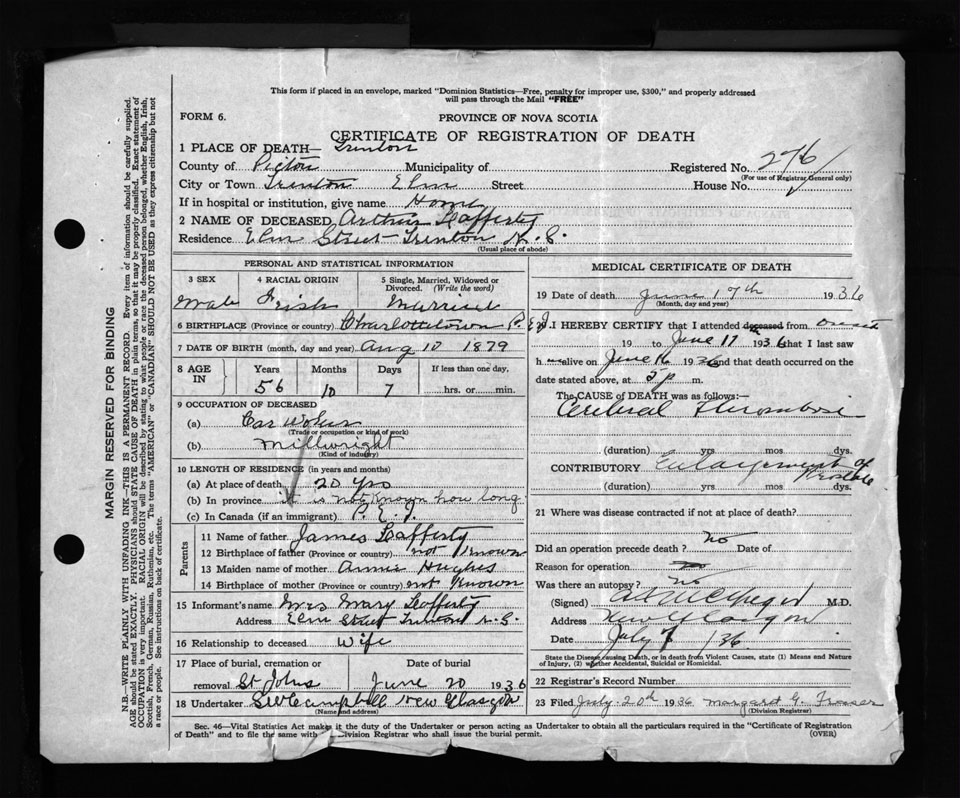 This form if placed in an envelope, marked "Dominion Statistics—Free, penalty for improper use, $300," and properly addressed
will pass through the Mail "FREE"
FORM 6.
PROVINCE OF NOVA SCOTIA
CERTIFICATE OF REGISTRATION OF DEATH
1 PLACE OF DEATH— Trenton
County of Pictou Municipality of Registered No. 276
(For use of Registrar General only)
City or Town Trenton Elm Street House No.
If in hospital or institution, give name Home
2 NAME OF DECEASED Arthur Lafferty
Residence Elm Street Trenton N.S.
(Usual place of abode)
PERSONAL AND STATISTICAL INFORMATION
3 SEX 4 RACIAL ORIGIN 5 Single, Married, Widowed or
Divorced. (Write the word)
Male Irish Married
6 BIRTHPLACE (Province or country) Charlottetown P.E.I.
7 DATE OF BIRTH (month, day and year) Aug 10 1879
8 AGE IN Years Months Days If less than one day,
56 10 7 hrs. or min.
9 OCCUPATION OF DECEASED
(a) Car
(Trade or occupation or kind of work)
(b) Millwright
(Kind of industry)
10 LENGTH OF RESIDENCE (in years and months)
(a) At place of death 20 yrs
(b) In province it is not known how long
(c) In Canada (if an immigrant) P.E.I.
Parents
11 Name of father James Lafferty
12 Birthplace of father (Province or country) not known
13 Maiden name of mother Annie Hughes
14 Birthplace of mother (Province or country) not known
15 Informant's name Mrs Mary Lafferty
Address Elm Street Trenton N.S.
16 Relationship to deceased Wife
17 Place of burial, cremation or Date of burial
removal St Johns June 20 1936
18 Undertaker SW Campbell New Glasgow
(Name and address)
MEDICAL CERTIFICATE OF DEATH
19 Date of death June 17th 1936
(Month, day and year)
I HEREBY CERTIFY that I attended deceased from
19 to June 17 1936 that I last saw
h alive on June 16 1936 and that death occurred on the
date stated above, at 5 p m.
The CAUSE OF DEATH was as follows:—
Cerebral Thrombosis
(duration) yrs mos dys.
CONTRIBUTORY Enlargement of Prostate
(duration) yrs. mos. dys.
21 Where was disease contracted if not at place of death?
Did an operation precede death? No Date of
Reason for operation
Was there an autopsy? no
(Signed) McGregor M.D.
Address New Glasgow
Date July 7 136
State the Disease causing Death, or in death from Violent Causes, state (1) Means and Nature
of Injury, (2) whether Accidental, Suicidal or Homicidal.
22 Registrar's Record Number
23 Filed July 20th 1936 Margaret G. Fraser
(Division Registrar)
Sec. 46—Vital Statistics Act makes it the duty of the Undertaker or person acting as Undertaker to obtain all the particulars required in the "Certificate of Registration
of Death" and to file the same with Division Registrar who shall issue the burial permit. (OVER)
MARGIN RESERVED FOR BINDING
N.B.—WRITE PLAINLY WITH UNFADING INK—THIS IS A PERMANENT RECORD. Every item of information should be carefully supplied.
AGE should be stated EXACTLY. PHYSICIANS should STATE CAUSE OF DEATH in plain terms, so that it may be properly classified. Exact statement of
OCCUPATION is very important. RACIAL ORIGIN will be described by stating to what people or race the deceased person belonged, whether English, Irish,
Scottish, French, German, Russian, Ruthenian, etc. The terms "AMERICAN" or "CANADIAN" SHOULD NOT BE USED as they express citizenship but not
a race or people. See instructions on back of certificate.